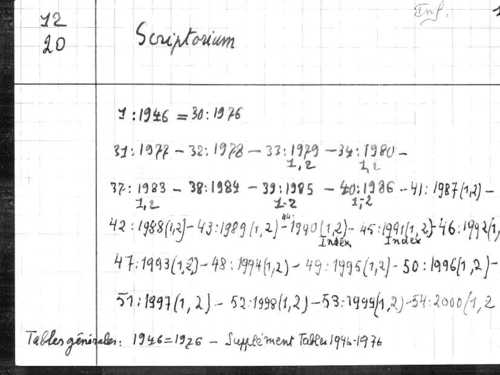 Inf. 1
12
20
Scriptorium
1:1946 = 30:1976
31:1977 - 32:1978 - 33:1979 - 34:1980 -
1,2 1,2
37:1983 - 38:1984 - 39:1985 - 40:1986 - 41:1987(1,2) -
1,2 1-2 1,-2
42:1988(1,2) - 43:1989(1,2) - 44:1990(1,2) - 45:1991(1,2) - 46:1992(1,
Index Index
47:1993(1,2) - 48:1994(1,2) - 49:1995(1,2) - 50:1996(1,2) -
51:1997(1,2) - 52:1998(1,2) - 53:1999(1,2) - 54:2000(1,2
Tables générales: 1946=1976 - Supplément Tables 1946-1976